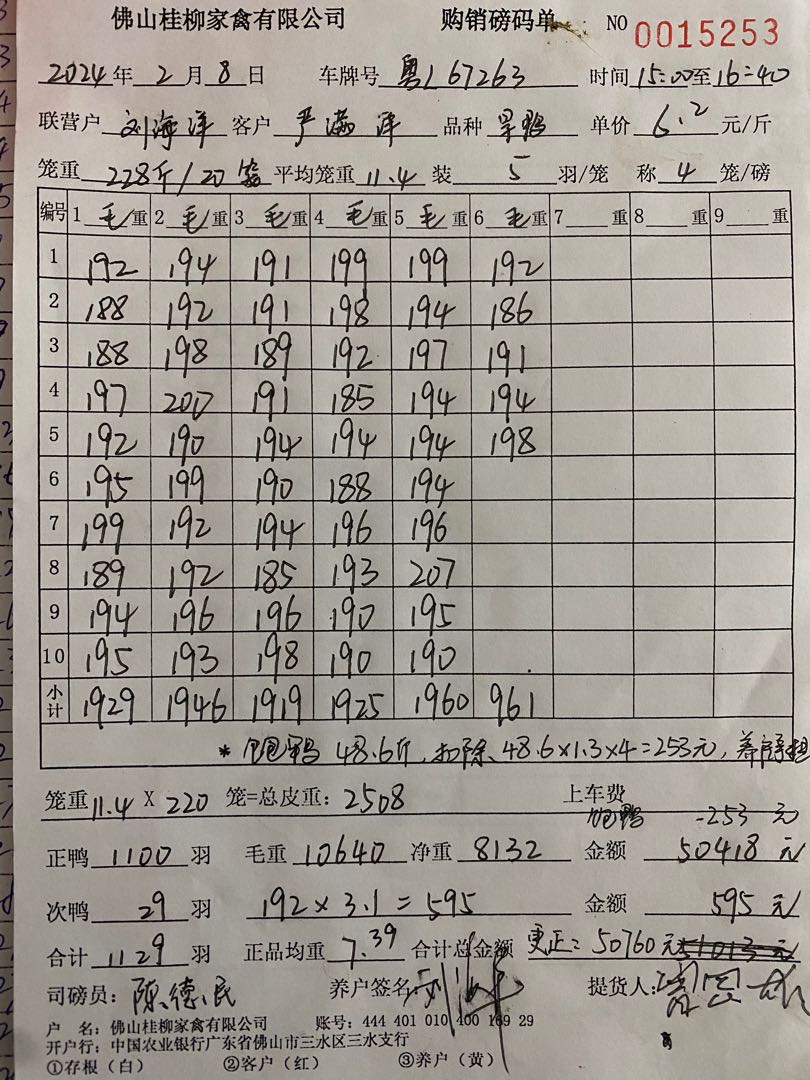 佛山桂柳家禽有限公司 购销磅码单 NO 0015253
2024年2月8日 车牌号 粤L67263 时间15:00至16:40
联营户 刘海洋 客户 严满洋 品种 旱鸭 单价 6.2 元/斤
笼重 228斤/20笼 平均笼重 11.4 装 5 羽/笼 称 4 笼/磅
编号 1 毛 重 2 毛 重 3 毛 重 4 毛 重 5 毛 重 6 毛 重 7 重 8 重 9 重
1 192 194 191 199 199 192
2 188 192 191 198 194 186
3 188 198 189 192 197 191
4 197 200 191 185 194 194
5 192 190 194 194 194 198
6 195 199 190 188 194
7 199 192 194 196 196
8 189 192 185 193 207
9 194 196 196 190 195
10 195 193 198 190 190
小计 1929 1946 1919 1925 1960 961
* 鸭 48.6斤,扣除、48.6×1.3×4=253元,养户
笼重 11.4 X 220 笼=总皮重:2508 上车费
鸭 -253 元
正鸭 1100 羽 毛重 10640 净重 8132 金额 50418 元
次鸭 29 羽 192×3.1=595 金额 595 元
合计 1129 羽 正品均重 7.39 合计总金额 更正:50760元 51013元
司磅员:陈德民 养户签名 提货人:
户 名:佛山桂柳家禽有限公司 账号:444 401 010 400 169 29
开户行:中国农业银行广东省佛山市三水区三水支行
①存根(白) ②客户(红) ③养户(黄)